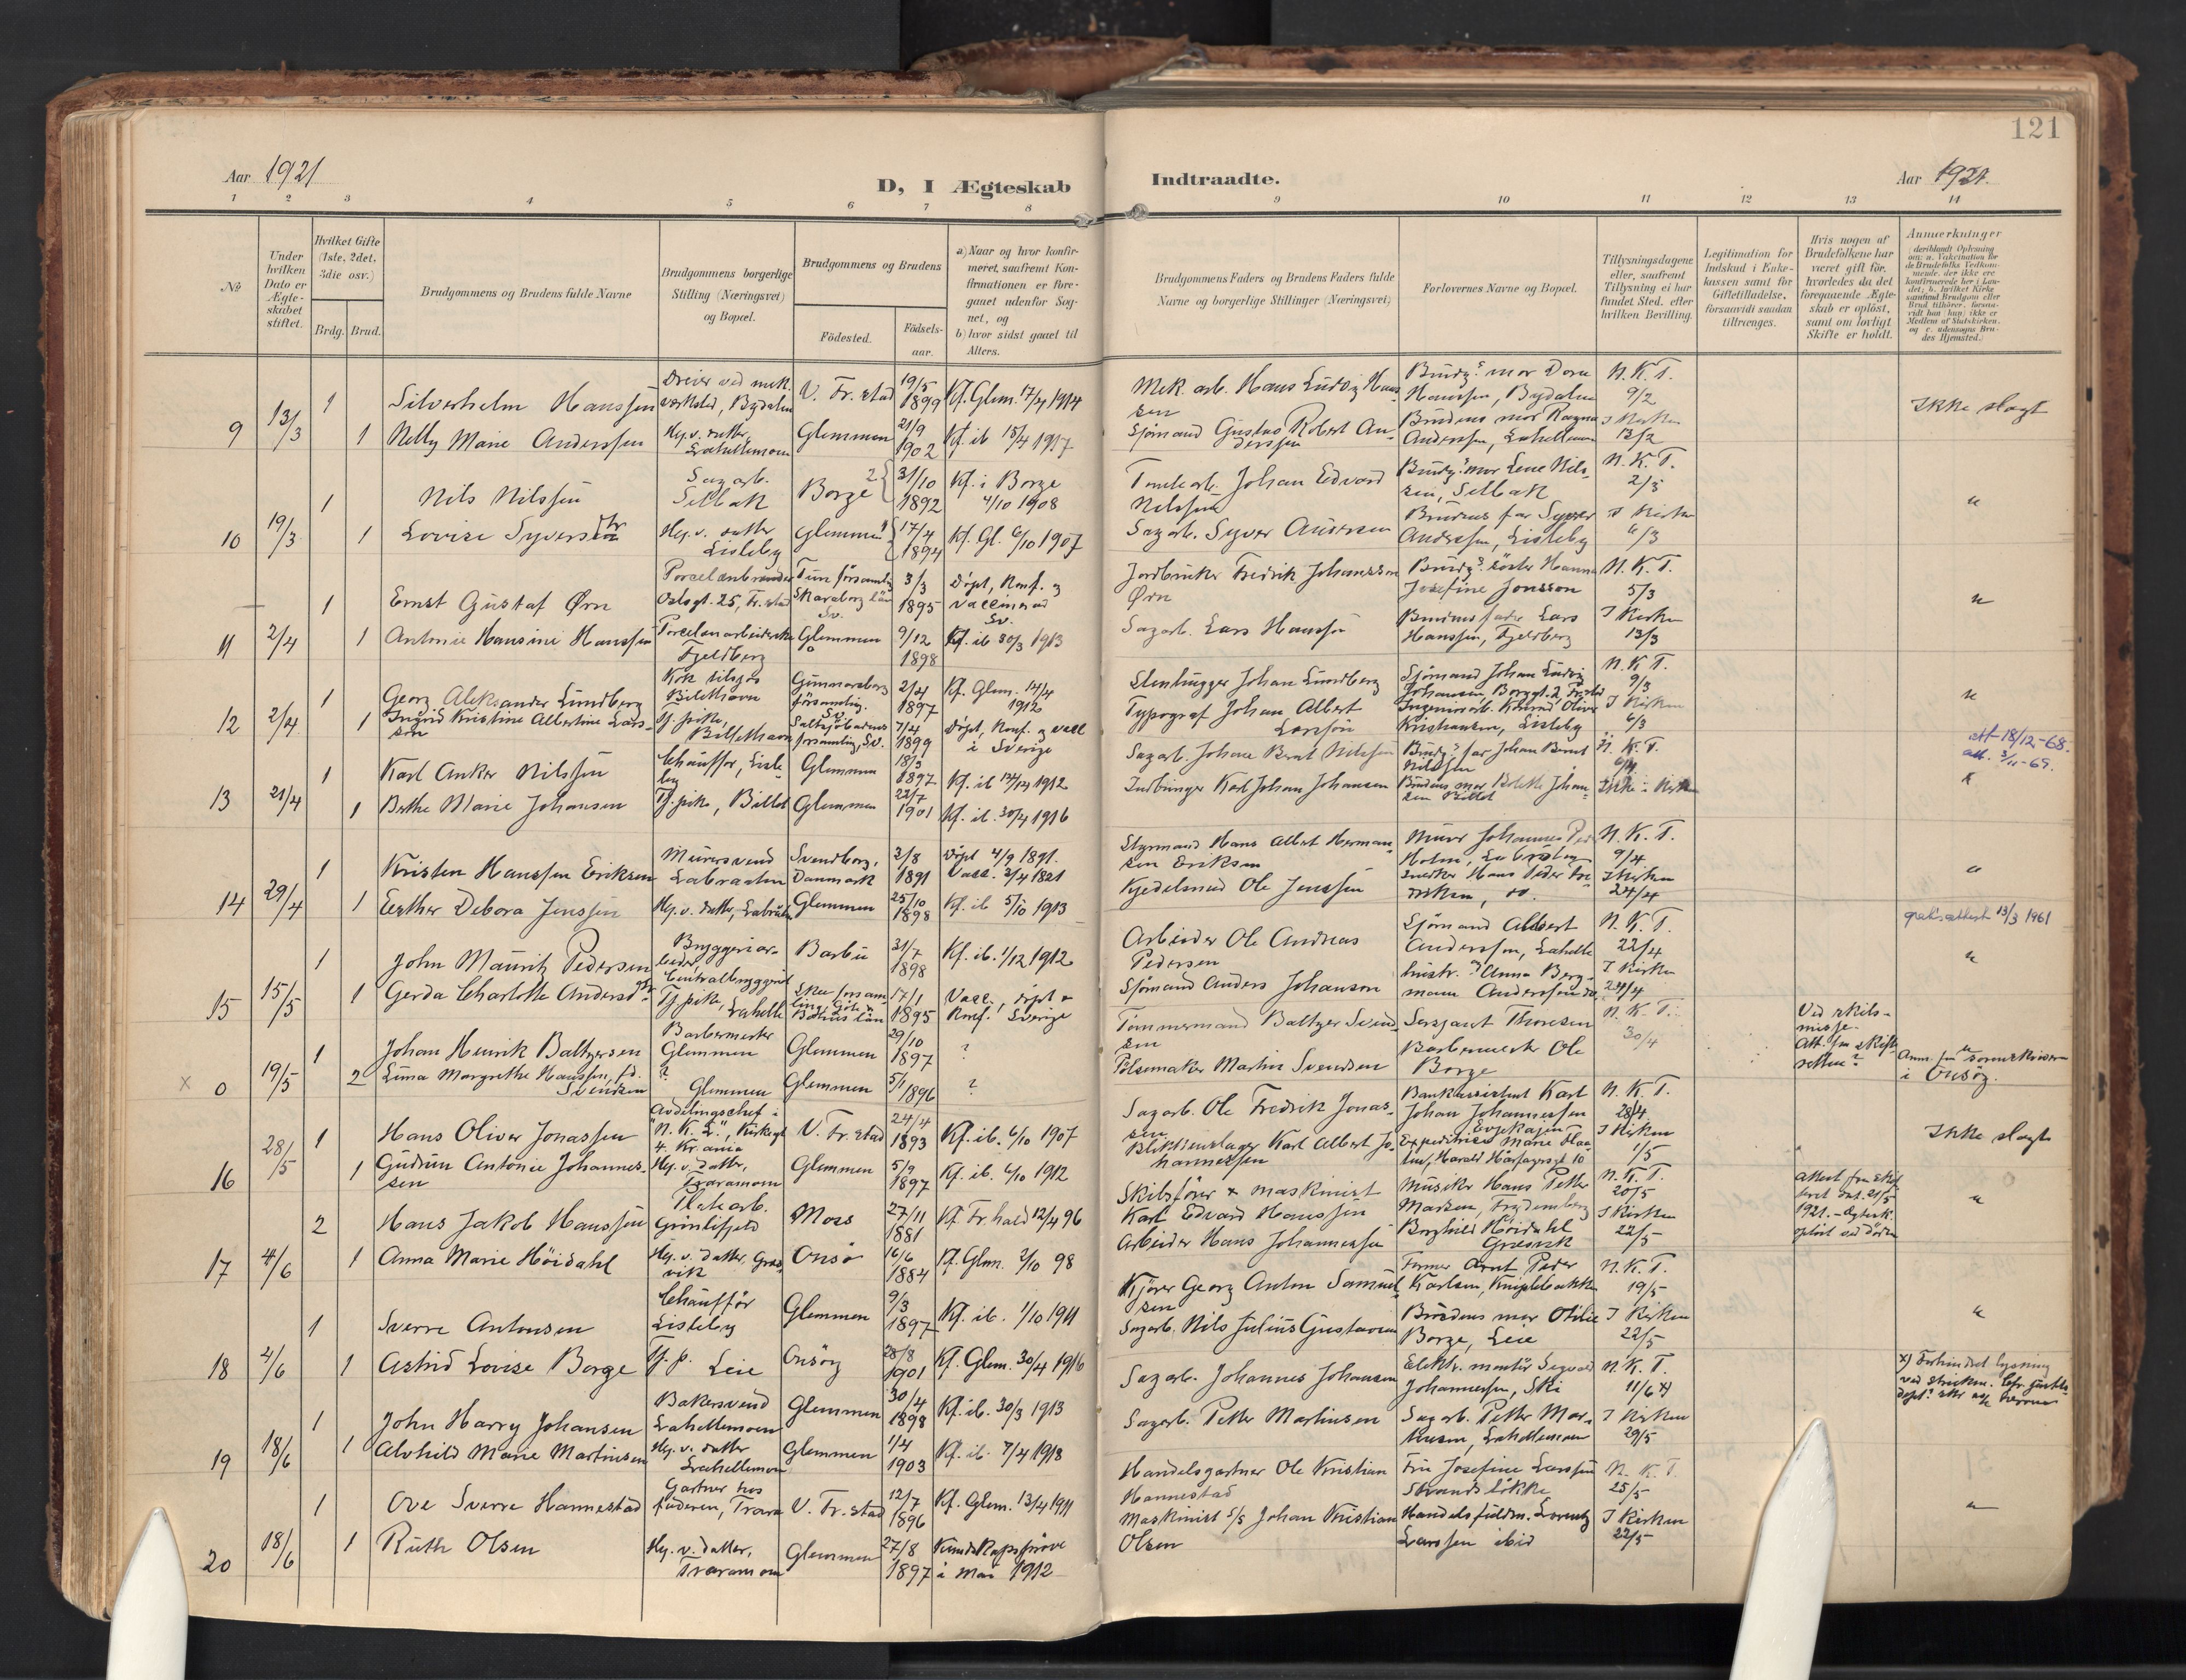 121
Aar 1921
D, I Ægteskab
Indtraadte.
Aar 1921.
1 2 3 4 5 6 7 8
9 10 11 12 13 14
№
Under hvilken Dato er Ægteskabet stiftet.
Hvilket Gifte (1ste, 2det, 3die osv.)
Brdg. Brud.
Brudgommens og Brudens fulde Navne
Brudgommens borgerlige Stilling (Næringsvei) og Bopæl.
Brudgommens og Brudens
Fødested.
Fødselsaar.
a) Naar og hvor konfirmeret, saafremt Konfirmationen er foregaaet udenfor Sognet, og
b) hvor sidst gaaet til Alters.
Brudgommens Faders og Brudens Faders fulde Navne og borgerlige Stillinger (Næringsvei)
Forlovernes Navne og Bopæl.
Tillysningsdagene eller, saafremt Tillysning ei har fundet Sted, efter hvilken Bevilling.
Legitimation for Indskud i Enkekassen samt for Giftetilladelse, forsaavidt saadan tiltrænges.
Hvis nogen af Brudefolkene har været gift før, hvorledes da det foregaaende Ægteskab er opløst, samt om lovligt Skifte er holdt.
Anmerkninger
(deriblandt Oplysning om: a. Vakcination for de Brudefolks Vedkommende, der ikke ere konfirmerede her i Landet; b. hvilket Kirkesamfund Brudgom eller Brud tilhører, forsaavidt han (hun) ikke er Medlem af Statskirken, og c. udensogns Brudes Hjemsted.)
9 13/3 1 Silverhelm Hanssen Dreier ved mek. verksted, Bydalen V. Fr.stad 19/5 1899 Kf. Glem. 17/4 1914 Mek. arb. Hans Ludvig Hanssen Brudg.s mor Dora Hanssen, Bydalen N. K. T. 9/2 Ikke slegt
1 Nelly Marie Anderssen Hj.v. datter, Lahellemoen Glemmen 21/9 1902 Kf. ib 15/4 1917 Sjømand Gustav Robert Anderssen Brudens mor Ragna Anderssen, Lahellemoen I Kirken 13/2
10 19/3 1 Nils Nilssen Sagarb. Selbak Borge 31/10 1892 Kf. i Borge 4/10 1908 Tomtearb. Johan Edvard Nilssen Brudg.s mor Lene Nilssen, Selbak N. K. T. 2/3 "
1 Lovise Syverstr Hj.v. datter Lisleby Glemmen 17/4 1894 Kf. Gl. 6/10 1907 Sagarb. Syver Andersen Brudens far Syver Anderssen, Lisleby I Kirken 6/3
11 2/4 1 Ernst Gustaf Ørn Porcelænbrænder Oslogt. 25, Fr.stad Tun församling Skaraborg län Sv. 3/3 1895 Døpt, Konf. og Vaccinerad Sv. Jordbruker Fredrik Johansson Ørn Brudg.s søster Hanna Josefine Jonsson N. K. T. 5/3 "
1 Antonie Hansine Hanssen Porcelænarbeiderske Fjeldberg Glemmen 9/12 1898 Kf. ib 30/3 1913 Sagarb. Lars Hanssen Brudens fader Lars Hanssen, Fjeldberg I Kirken 13/3
12 2/4 1 Georg Aleksander Lundberg Kok tilsjøs Gunnarsborg församling. Sv. 2/4 1897 Kf. Glem. 14/4 1912 Stenhugger Johan Lundberg Sjømand Johan Ludvig Johansen, Borggt. 2 N. K. T. 9/3 "
1 Ingrid Kristine Albertine Larsson Tj.pike, Saltsjöbadens församling, Sv. 7/4 1899 Døpt, Konf. og vacc i Sverige Typograf Johan Albert Larssön Konrad Oliver Kristiansen, Lisleby I Kirken 6/3
13 21/4 1 Karl Anker Nilssen Chauffør, Lisleby Glemmen 18/3 1897 Kf. ib 14/4 1912 Sagarb. Johan Bernt Nilssen Brudg.s far Johan Bernt Nilssen N. K. T. att 18/12-68. att. 3/11-69.
1 Berthe Marie Johansen Tj.pike, Glemmen 22/7 1901 Kf. ib. 30/4 1916 Karl Johan Johansen Brudens mor Bolette Johansen I Kirken
14 29/4 1 Kristen Hanssen Eriksen Murersvend Labraaten Svendborg, Danmark 2/8 1891 Døpt 4/9 1891. Vacc. 3/4 1821 Styrmand Hans Albert Hermansen Eriksen Murer Johannes N. K. T. 9/4 "
1 Esther Debora Jenssen Hj.v. datter, Labråten Glemmen 25/10 1898 Kf. ib 5/10 1913 Kjedelsmed Ole Jenssen Snedker Hans Peder I Kirken 24/4 gratisattest 13/3 1961
15 15/5 1 John Mauritz Pedersen Bryggeriarbeider, Centralbryggeriet Barbu 31/7 1898 Kf. ib. 1/12 1912 Arbeider Ole Andreas Pedersen Sjømand Albert Anderssen, Lahelle N. K. T. 22/4 "
1 Gerda Charlotte Anders Tj.pike, Lahelle Skee församling, Göte & Bohus län 17/1 1895 Vacc., döpt & Konf. Sverige Sjømand Anders Johanson hustr. Anna Bergmann Anderssen I Kirken 24/4
x 0 19/5 1 Johan Henrik Baltzersen Barbermester Glemmen Glemmen 29/10 1897 ? Tømmermand Baltzer Svendsen Sersjant Thoresen N. K. T. 30/4 Ved skilsmisse. Att. fra skifteretten?
2 Lima Margrethe Hanssen, fd. Svendsen ? Glemmen Glemmen 5/1 1896 ? Pølsemaker Martin Svendsen Barbermester Ole Borge Anm. fra sorenskriveren i Onsøy.
16 28/5 1 Hans Oliver Jonassen Avdelingschef i "N. K. L.", Kirkegt 4. Kr.ania V. Fr.stad 24/4 1893 Kf. ib. 6/10 1907 Sagarb. Ole Fredrik Jonassen Bankassistent Karl Johan Johannessen N. K. T. 28/4 Ikke slegt
1 Gudrun Antonie Johannessen Hj.v. datter, Traramoen Glemmen 5/9 1897 Kf. ib. 6/10 1912 Blikkenslager Karl Albert Johannessen Expeditrice Marie Harald Hårfagresgt 10 I Kirken 1/5
17 4/6 2 Hans Jakob Hanssen Grønlifjeld Moss 27/11 1881 Kf. Fr.hald 12/4 96 Skibsfører & maskinist Karl Edvard Hanssen Musiker Hans Petter Madsen, Frydenberg N. K. T. 20/5 Attest fra skifteret dat. 21/5 1921. – Egtesk. opløst ved døden "
1 Anna Marie Höidahl Hj.v. datter, Gressvik Onsø 16/6 1884 Kf. Glem. 2/10 98 Arbeider Hans Johannessen Borghild Høidahl Gresvik I Kirken 22/5
18 4/6 1 Sverre Antonsen Chauffør Lisleby Glemmen 9/3 1897 Kf. ib. 1/10 1911 Kjører Georg Anton Samuelsen Former Arnt Peder Karlsen, Kniplebakken N. K. T. 19/5 "
1 Astrid Lovise Borge Tj.p. Leie Onsøy 28/8 1901 Kf. Glem. 30/4 1916 Sagarb. Nils Julius Gustavsen Brudens mor Otilie Borge, Leie I Kirken 22/5
19 18/6 1 John Harry Johansen Bakersvend Lahellemoen Glemmen 30/4 1898 Kf. ib. 30/3 1913 Sagarb. Johannes Johansen Elektr. montør Sigvald Johannessen, Ski N. K. T. 11/6 x) x) Forhindret lysning ved streiken.
1 Alvhild Marie Martinsen Hj.v. datter Lahellemoen Glemmen 1/4 1903 Kf. ib. 7/4 1918 Sagarb. Petter Martinsen Sagarb. Petter Martinsen, Lahellemoen I Kirken 29/5
20 18/6 1 Ove Sverre Hannestad Gartner hos faderen, Trara V. Fr.stad 12/7 1896 Kf. Glem. 13/4 1911 Handelsgartner Ole Kristian Hannestad Fru Josefine Larssen Strandløkke N. K. T. 25/5 "
1 Ruth Olsen Hj.v. datter, Traramoen Glemmen 27/8 1897 Kundskapsprøve i Mai 1912 Maskinist s/s Johan Kristian Olsen Handelsfuldm. Lorentz Larssen ibid I Kirken 22/5